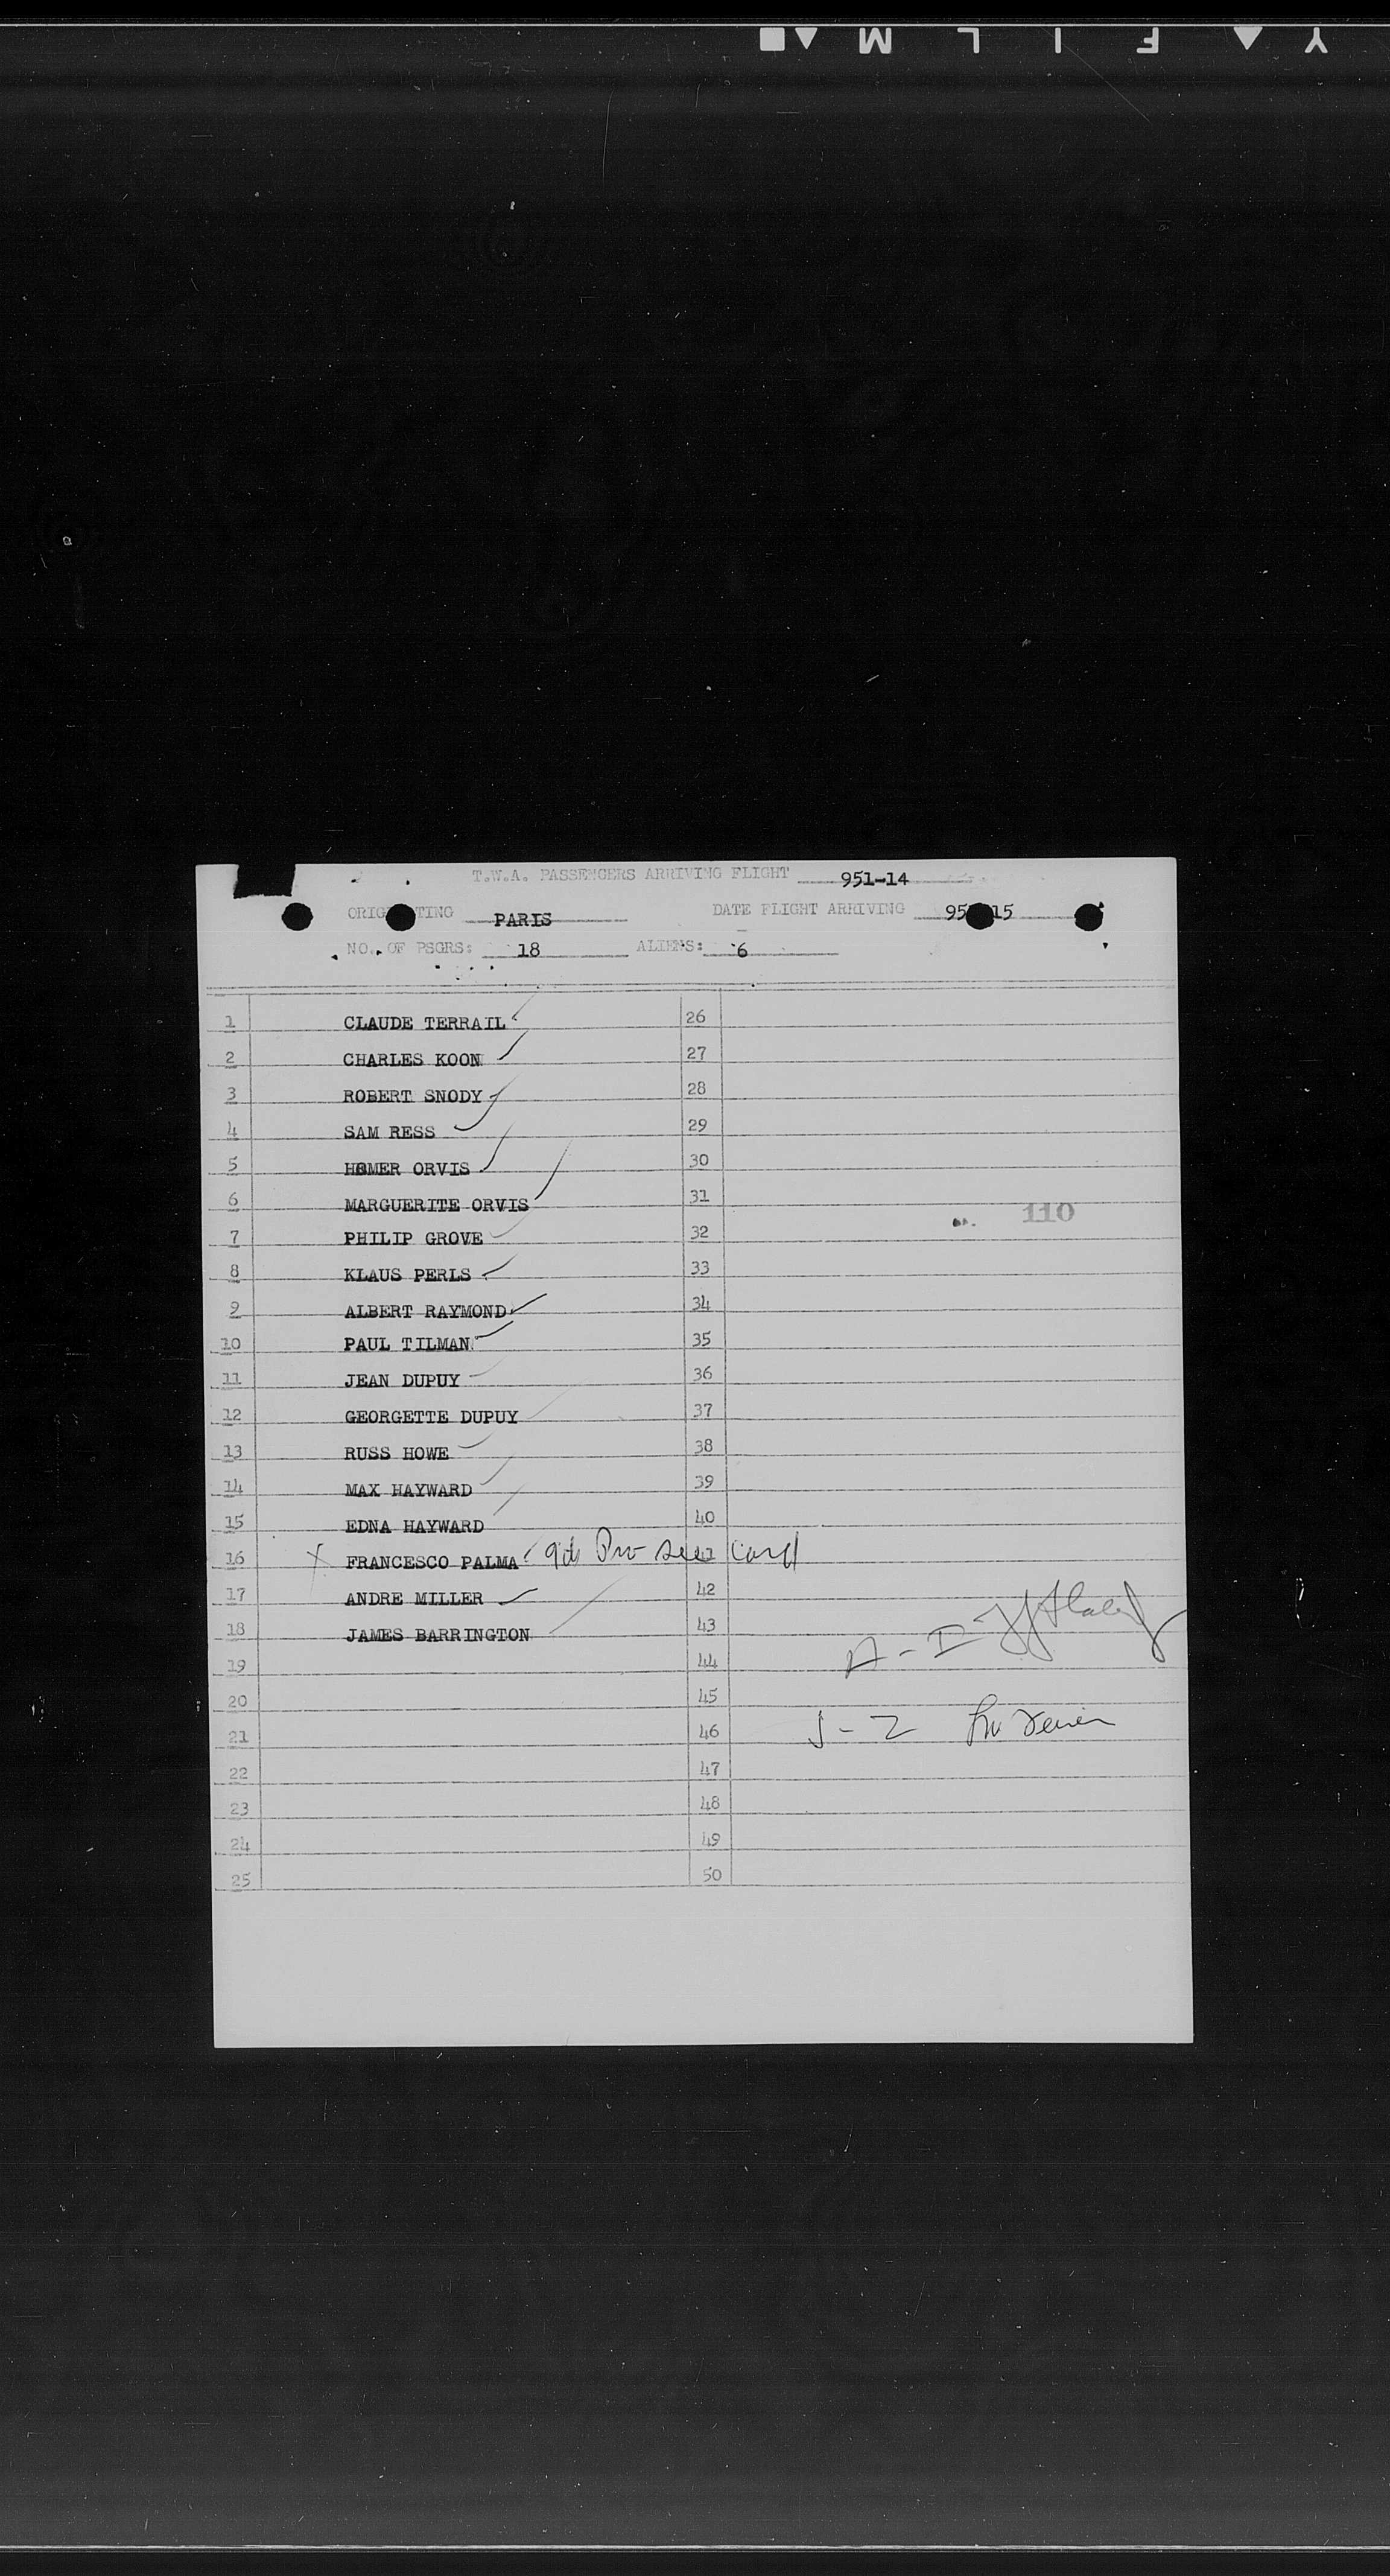 T.W.A. PASSENGERS ARRIVING FLIGHT 951-14
ORIG TING PARIS DATE FLIGHT ARRIVING 95 15
NO. OF PSGRS: 18 ALIENS: 6
1 CLAUDE TERRAIL 26
2 CHARLES KOON 27
3 ROBERT SNODY 28
4 SAM RESS 29
5 HOMER ORVIS 30
6 MARGUERITE ORVIS 31
110
7 PHILIP GROVE 32
8 KLAUS PERLS 33
9 ALBERT RAYMOND 34
10 PAUL TILMAN 35
11 JEAN DUPUY 36
12 GEORGETTE DUPUY 37
13 RUSS HOWE 38
14 MAX HAYWARD 39
15 EDNA HAYWARD 40
16 X FRANCESCO PALMA card
17 ANDRE MILLER 42
18 JAMES BARRINGTON 43
A - I
19 44
20 45
21 46 J - Z
22 47
23 48
24 49
25 50